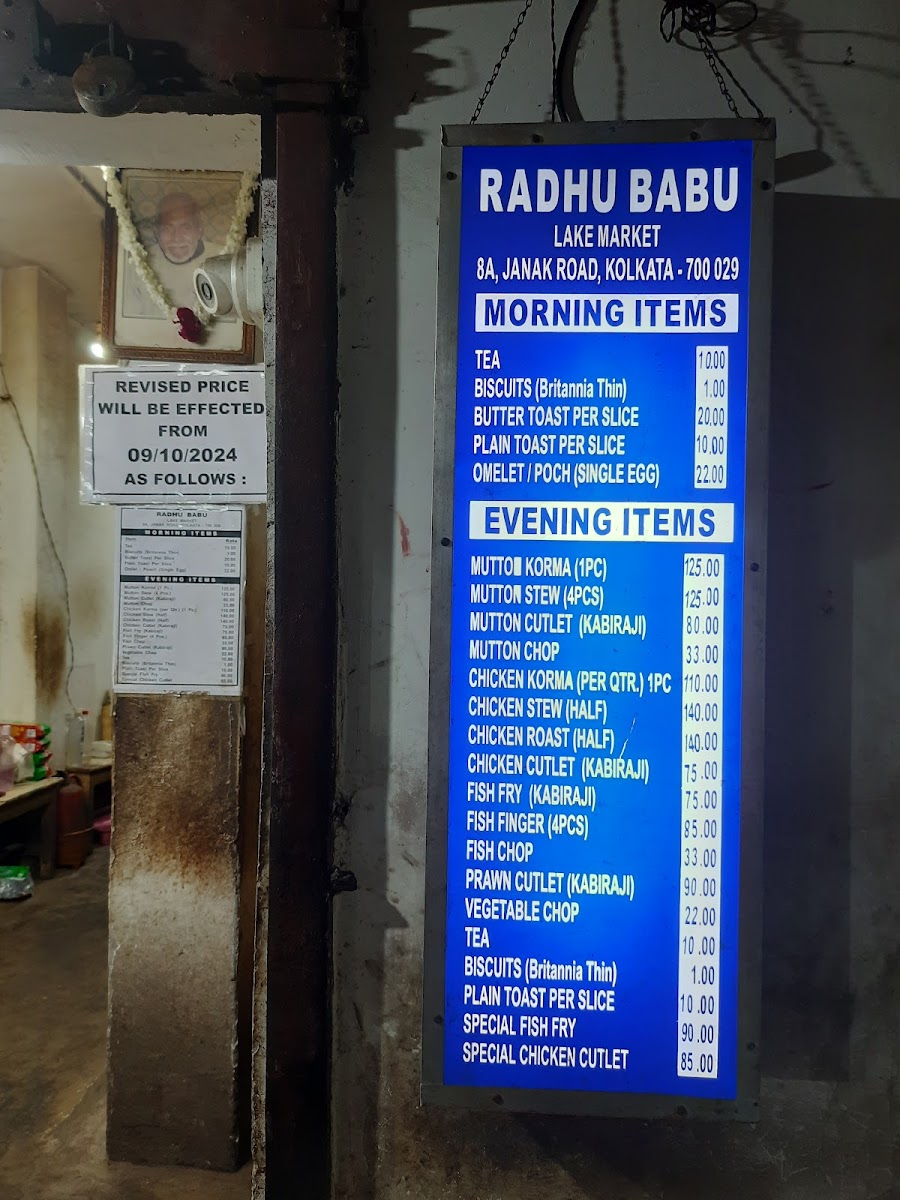 REVISED PRICE
WILL BE EFFECTED
FROM
09/10/2024
AS FOLLOWS :
RADHU BABU
LAKE MARKET
MORNING ITEMS
EVENING ITEMS
RADHU BABU
LAKE MARKET
8A, JANAK ROAD, KOLKATA - 700 029
MORNING ITEMS
TEA 10.00
BISCUITS (Britannia Thin) 1.00
BUTTER TOAST PER SLICE 20.00
PLAIN TOAST PER SLICE 10.00
OMELET / POCH (SINGLE EGG) 22.00
EVENING ITEMS
MUTTON KORMA (1PC) 125.00
MUTTON STEW (4PCS) 125.00
MUTTON CUTLET (KABIRAJI) 80.00
MUTTON CHOP 33.00
CHICKEN KORMA (PER QTR.) 1PC 110.00
CHICKEN STEW (HALF) 140.00
CHICKEN ROAST (HALF) 140.00
CHICKEN CUTLET (KABIRAJI) 75.00
FISH FRY (KABIRAJI) 75.00
FISH FINGER (4PCS) 85.00
FISH CHOP 33.00
PRAWN CUTLET (KABIRAJI) 90.00
VEGETABLE CHOP 22.00
TEA 10.00
BISCUITS (Britannia Thin) 1.00
PLAIN TOAST PER SLICE 10.00
SPECIAL FISH FRY 90.00
SPECIAL CHICKEN CUTLET 85.00